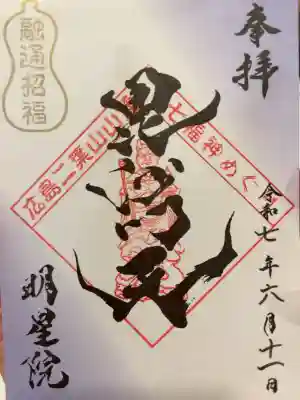 奉拝
融通招福
毘沙門天
広島二葉山山
七福神めぐ
令和七年六月十一日
明星院